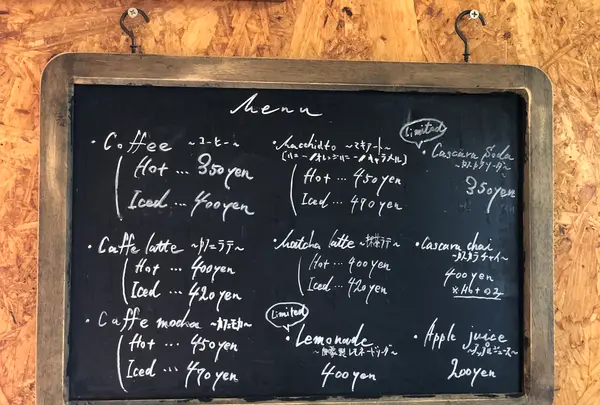 Menu
・Coffee ~コーヒー~
Hot … 350yen
Iced … 400yen
・Caffe latte ~カフェラテ~
Hot … 400yen
Iced … 420yen
・Caffe mocha ~カフェモカ~
Hot … 450yen
Iced … 470yen
・Macchiato ~マキアート~
Hot … 450yen
Iced … 470yen
・Matcha latte ~抹茶ラテ~
Hot … 400yen
Iced … 420yen
Limited
・Lemonade
~自家製レモネードリンク~
400yen
Limited
・Cascara Soda
~カスカラソーダ~
350yen
・Cascara chai
~カスカラチャイ~
400yen
※Hotのみ
・Apple juice
~アップルジュース~
200yen